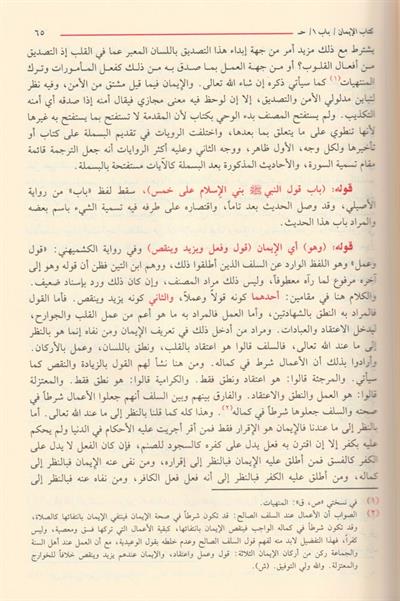 كتاب الإيمان / باب ١/ حـ ٦٥
يشترط مع ذلك مزيد أمر من جهة إبداء هذا التصديق باللسان المعبر عما في القلب إذ التصديق
من أفعال القلوب؟ أو من جهة العمل بما صدق به من ذلك كفعل المأمورات وترك
المنتهيات(١) كما سيأتي ذكره إن شاء الله تعالى. والإيمان فيما قيل مشتق من الأمن، وفيه نظر
لتباين مدلولي الأمن والتصديق، إلا إن لوحظ فيه معنى مجازي فيقال أمنه إذا صدقه أي أمنه
التكذيب. ولم يستفتح المصنف بدء الوحي بكتاب لأن المقدمة لا تستفتح بما يستفتح به غيرها
لأنها تنطوي على ما يتعلق بما بعدها، واختلفت الروايات في تقديم البسملة على كتاب أو
تأخيرها ولكل وجه، الأول ظاهر، ووجه الثاني وعليه أكثر الروايات أنه جعل الترجمة قائمة
مقام تسمية السورة، والأحاديث المذكورة بعد البسملة كالآيات مستفتحة بالبسملة.
قوله: (باب قول النبي ﷺ بني الإسلام على خمس)، سقط لفظ «باب» من رواية
الأصيلي، وقد وصل الحديث بعد تاماً، واقتصاره على طرفه فيه تسمية الشيء باسم بعضه
والمراد باب هذا الحديث.
قوله: (وهو) أي الإيمان (قول وفعل ويزيد وينقص) وفي رواية الكشميهني: «قول
وعمل» وهو اللفظ الوارد عن السلف الذين أطلقوا ذلك، ووهم ابن التين فظن أن قوله وهو إلى
آخره مرفوع لما رآه معطوفاً، وليس ذلك مراد المصنف، وإن كان ذلك ورد بإسناد ضعيف.
والكلام هنا في مقامين: أحدهما كونه قولاً وعملاً، والثاني كونه يزيد وينقص. فأما القول
فالمراد به النطق بالشهادتين، وأما العمل فالمراد به ما هو أعم من عمل القلب والجوارح،
ليدخل الاعتقاد والعبادات. ومراد من أدخل ذلك في تعريف الإيمان ومن نفاه إنما هو بالنظر
إلى ما عند الله تعالى، فالسلف قالوا هو اعتقاد بالقلب، ونطق باللسان، وعمل بالأركان.
وأرادوا بذلك أن الأعمال شرط في كماله. ومن هنا نشأ لهم القول بالزيادة والنقص كما
سيأتي. والمرجئة قالوا: هو اعتقاد ونطق فقط. والكرامية قالوا: هو نطق فقط. والمعتزلة
قالوا: هو العمل والنطق والاعتقاد. والفارق بينهم وبين السلف أنهم جعلوا الأعمال شرطاً في
صحته والسلف جعلوها شرطاً في كماله(٢). وهذا كله كما قلنا بالنظر إلى ما عند الله تعالى. أما
بالنظر إلى ما عندنا فالإيمان هو الإقرار فقط فمن أقر أجريت عليه الأحكام في الدنيا ولم يحكم
عليه بكفر إلا إن اقترن به فعل يدل على كفره كالسجود للصنم، فإن كان الفعل لا يدل على
الكفر كالفسق فمن أطلق عليه الإيمان فبالنظر إلى إقراره، ومن نفى عنه الإيمان فبالنظر إلى
كماله، ومن أطلق عليه الكفر فبالنظر إلى أنه فعل فعل الكافر، ومن نفاه عنه فبالنظر إلى
(١) في نسختي «ص، ق»: المنهيات.
(٢) الصواب أن الأعمال عند السلف الصالح: قد تكون شرطاً في صحة الإيمان فينتفي الإيمان بانتفائها كالصلاة،
وقد تكون شرطاً في كماله الواجب فينقص الإيمان بانتفائها، كبقية الأعمال التي تركها فسق ومعصية، وليس
كفراً، فهذا التفصيل لابد منه لفهم قول السلف الصالح وعدم خلطه بقول الوعيدية، مع أن العمل عند أهل السنة
والجماعة ركن من أركان الإيمان الثلاثة: قول وعمل واعتقاد، والإيمان عندهم يزيد وينقص خلافاً للخوارج
والمعتزلة. والله ولي التوفيق. (ش).